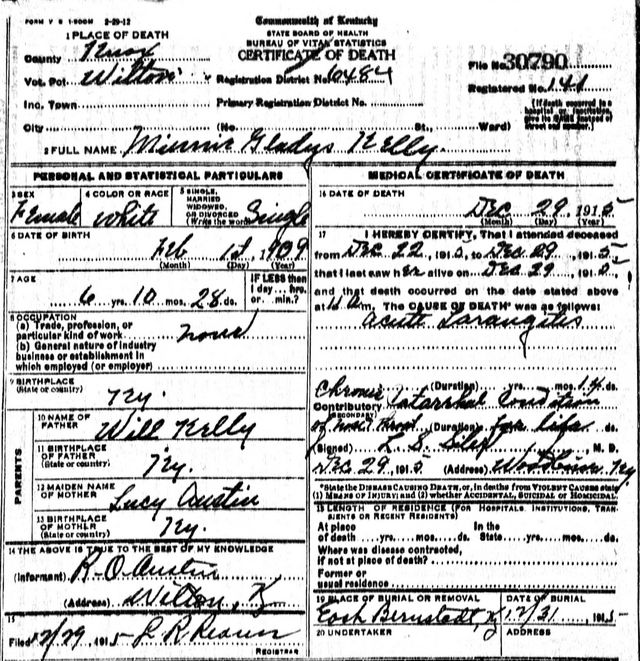 FORM V S 1-500M 2-29-12
Commonwealth of Kentucky
STATE BOARD OF HEALTH
BUREAU OF VITAL STATISTICS
CERTIFICATE OF DEATH
1 PLACE OF DEATH
County Knox
Vot. Pct. Wilton
Registration District No. 6484
File No. 30790
Registered No. 141
Inc. Town
Primary Registration District No.
[If death occurred in a hospital or institution, give its NAME instead of street and number.]
City (No. St., Ward)
2 FULL NAME Minnie Gladys Kelly.
PERSONAL AND STATISTICAL PARTICULARS
3 SEX Female
4 COLOR OR RACE White
5 SINGLE, MARRIED WIDOWED, OR DIVORCED (Write the word) Single
6 DATE OF BIRTH
Feb 1st, 1909
(Month) (Day) (Year)
7 AGE
6 yrs. 10 mos. 28 ds.
IF LESS than 1 day... hrs. or... min.?
8 OCCUPATION
(a) Trade, profession, or particular kind of work none
(b) General nature of industry business or establishment in which employed (or employer)
9 BIRTHPLACE
(State or country) Ky.
PARENTS
10 NAME OF FATHER Will Kelly
11 BIRTHPLACE OF FATHER (State or country) Ky.
12 MAIDEN NAME OF MOTHER Lucy Austin
13 BIRTHPLACE OF MOTHER (State or country) Ky.
14 THE ABOVE IS TRUE TO THE BEST OF MY KNOWLEDGE
(Informant) R. O. Austin
(Address) Wilton, Ky
15
Filed 12/29 1915
REGISTRAR
MEDICAL CERTIFICATE OF DEATH
16 DATE OF DEATH
Dec 29, 1915
(Month) (Day) (Year)
17 I HEREBY CERTIFY, That I attended deceased
from Dec 22, 1915, to Dec 29, 1915
that I last saw her alive on Dec 29, 1915,
and that death occurred on the date stated above
at m. The CAUSE OF DEATH* was as follows:
Acute Larangites
(Duration) yrs. mos. 14 ds.
Chronic Catarrhal Condition
Contributory
(SECONDARY)
of nose & throat (Duration) for life
(Signed) M. D.
Dec 29, 1915 (Address) Woodbine Ky
*State the DISEASE CAUSING DEATH, or, in deaths from VIOLENT CAUSES state (1) MEANS OF INJURY; and (2) whether ACCIDENTAL, SUICIDAL or HOMICIDAL.
18 LENGTH OF RESIDENCE (FOR HOSPITALS, INSTITUTIONS, TRANSIENTS OR RECENT RESIDENTS)
At place of death yrs. mos. ds. In the State yrs. mos. ds.
Where was disease contracted, if not at place of death?
Former or usual residence
19 PLACE OF BURIAL OR REMOVAL
East Bernstadt, Ky
DATE OF BURIAL
12/31 1915
20 UNDERTAKER
ADDRESS